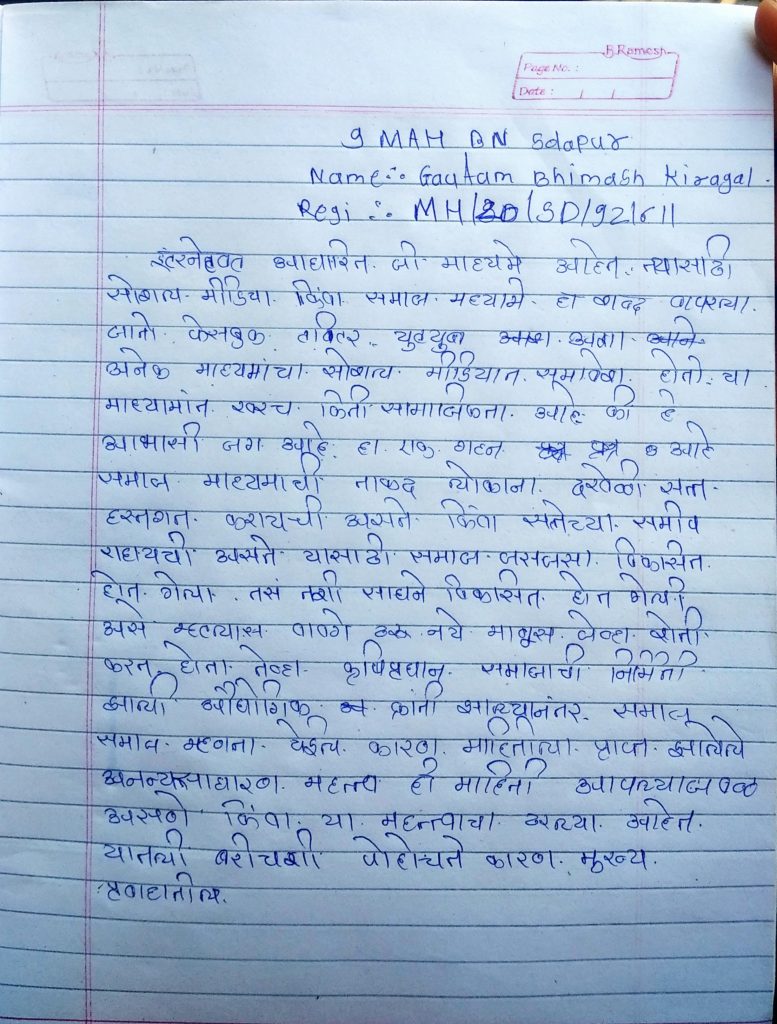 B.Ramesh
Page No. :
Date : / /
9 MAH BN Solapur
Name :- Gautam Bhimash Kiragal.
Regi :- MH/20/SD/92/611
इंटरनेटवत आधारित जी माध्यमे आहेत. त्यासाठी
सोशल मीडिया किंवा समाज मध्यामे हा शब्द वापरत्या
जातो फेसबुक तवितर युतयुब अशा
अनेक माध्यमांचा सोशल मीडियात सूमावेश होतो. या
माध्यामांत खरच किती सामाजिकता आहे की हे
आभासी जग आहे. हा एक गहन प्रश्न आहे
समाज माध्यमाची ताकद त्योकाना दरवेळी सत्ता
हस्तगत करायची असते किंवा सत्तेच्या समीप
राहायची असते यासाठी समाज जसजसा विकासित
होत गेत्या. तसं तशी साधने विकासित होत गेत्यी
असे म्हटत्यास वावगे ठरू नये माणूस जेव्हा शेती
करत होता तेव्हा कृषिप्रधान समाजाची निर्मिती
झात्यी औद्योगिक क्रांती झात्यानंतर समाज
समाज म्हणता येईत्य कारण माहितीत्या प्राप्त झात्येत्ये
अनन्यसाधारण महत्त्व ही माहिती आपत्याजवळ
असणे किंवा या महत्त्वाचा ठरत्या आहेत
यातत्यी बरीचशी पोहोचते कारण मुख्य
प्रवाहातीत्य.